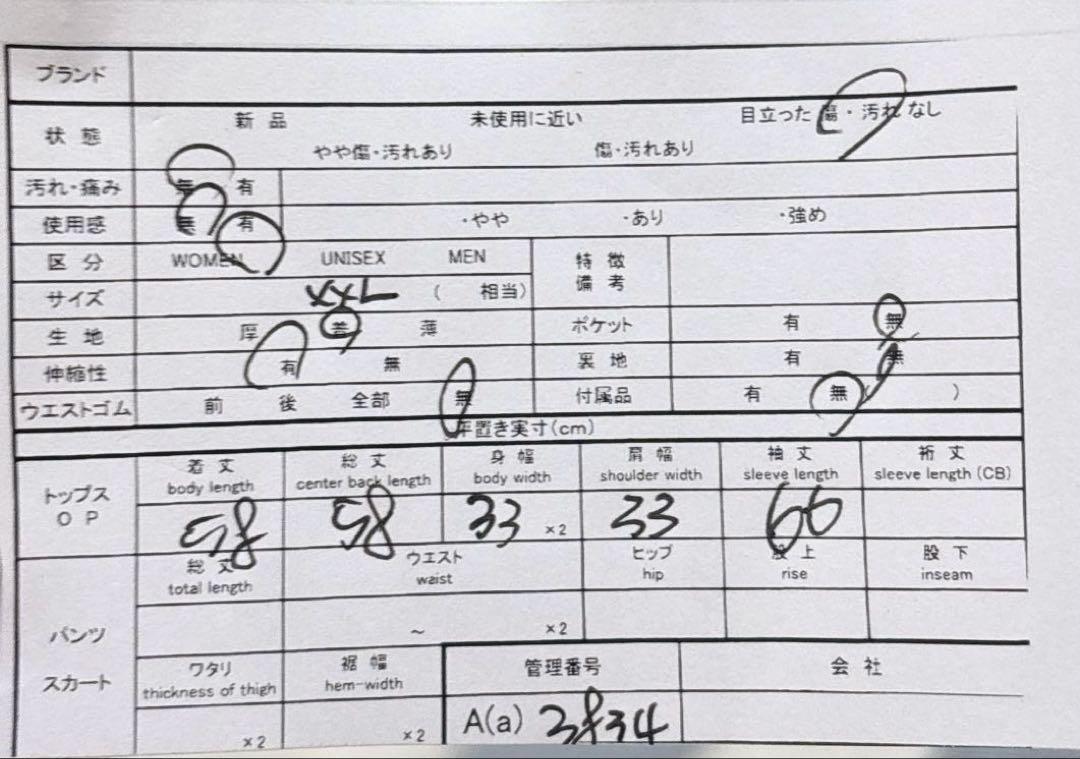 ブランド
状態 新品 未使用に近い 目立った傷・汚れなし
やや傷・汚れあり 傷・汚れあり
汚れ・痛み 無 有
使用感 無 有 ・やや ・あり ・強め
区分 WOMEN UNISEX MEN 特徴
備考
サイズ XXL ( 相当)
生地 厚 普 薄 ポケット 有 無
伸縮性 有 無 裏地 有 無
ウエストゴム 前 後 全部 無 付属品 有 無( )
平置き実寸(cm)
トップス
OP
着丈 総丈 身幅 肩幅 袖丈 裄丈
body length center back length body width shoulder width sleeve length sleeve length (CB)
58 58 33 ×2 33 66
パンツ
スカート
総丈 ウエスト ヒップ 股上 股下
total length waist hip rise inseam
~ ×2
ワタリ 裾幅 管理番号 会社
thickness of thigh hem-width
×2 ×2 A(a) 3834